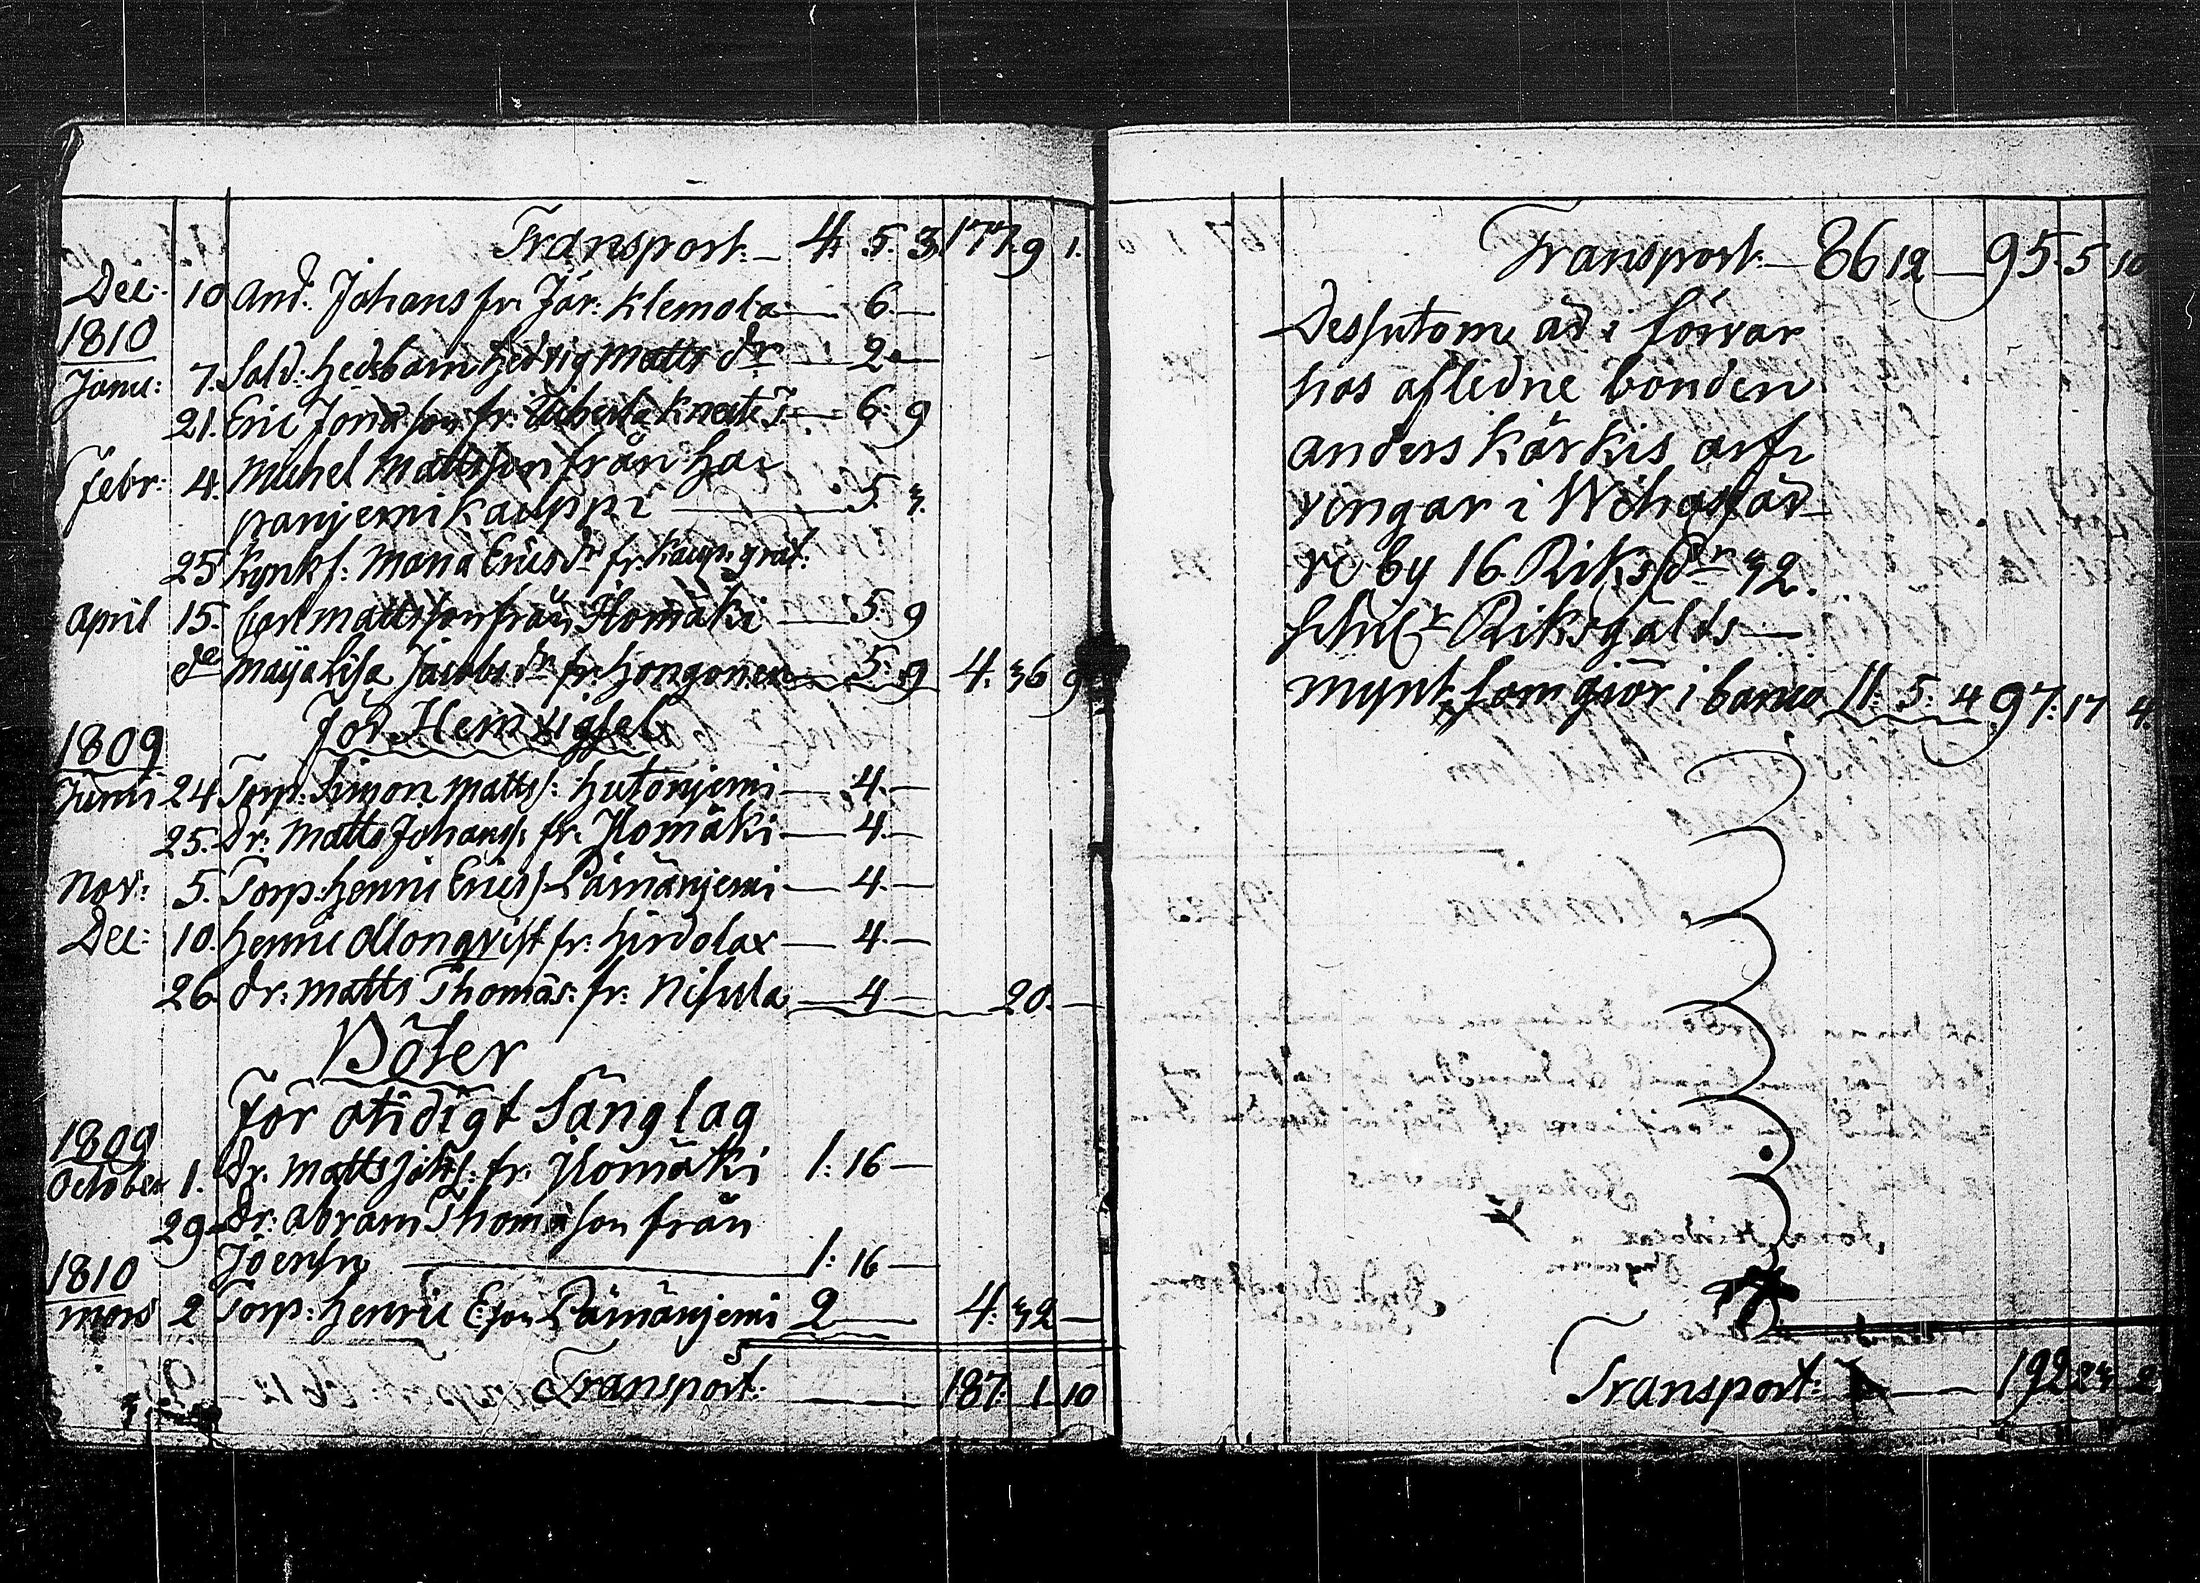 Transport. — 4. 5. 3. 177. 9 1.
Dec: 10 And. Johans fr. Jär: Klemola — 6. —
1810
Janu: 7. Sold: Hedbom Hedvig Matts dr — 2. —
21. Eric Jonasson fr. — 6. 9
Febr: 4. Michel Mattsson från Ha-
panjemi Kauppi — 5. 3.
25 Kynks: Maria Erics dr fr. Kaup. graf:
April 15. Carl Mattsson från Ilomäki — 5. 9
do Maija Lisa Jacobs dr fr. Hongonen — 5. 9 4. 36 9
För Hem vigsel
1809
Junii 24 Torp. Simon Matts: Hutonjemi — 4. —
25. Dr: Matts Johanss. fr. Ilomäki — 4. —
Nov: 5. Torp. Henric Ericss. Pämänjemi — 4. —
Dec: 10. Henric Mlonqvist fr: Hirdolax — 4. —
26. Dr: Matts Thomas: fr: Nisula — 4 — 20. —
Böter
För otidigt Sänglag
1809
October 1. Dr. Matts Johs: fr. Ilomäki 1: 16 —
29. Dr: Abram Thomasson från
Joensu — 1: 16 —
1810
Mars 2 Torp: Henric Eson Pämänjemi 2 — 4: 32 —
Transport: — 187. 1 10
Transport — 86 12 — 95. 5 10
Dessutom äd i förvar
hos aflidne bonden
Anders Kärkis arf-
vingar i Wihasjär-
vi by 16 Riksdr 32.
schilr Riksgälds —
mynt, som giör i banco 11. 5. 4 97: 17 4.
Transport: — 192 23 2